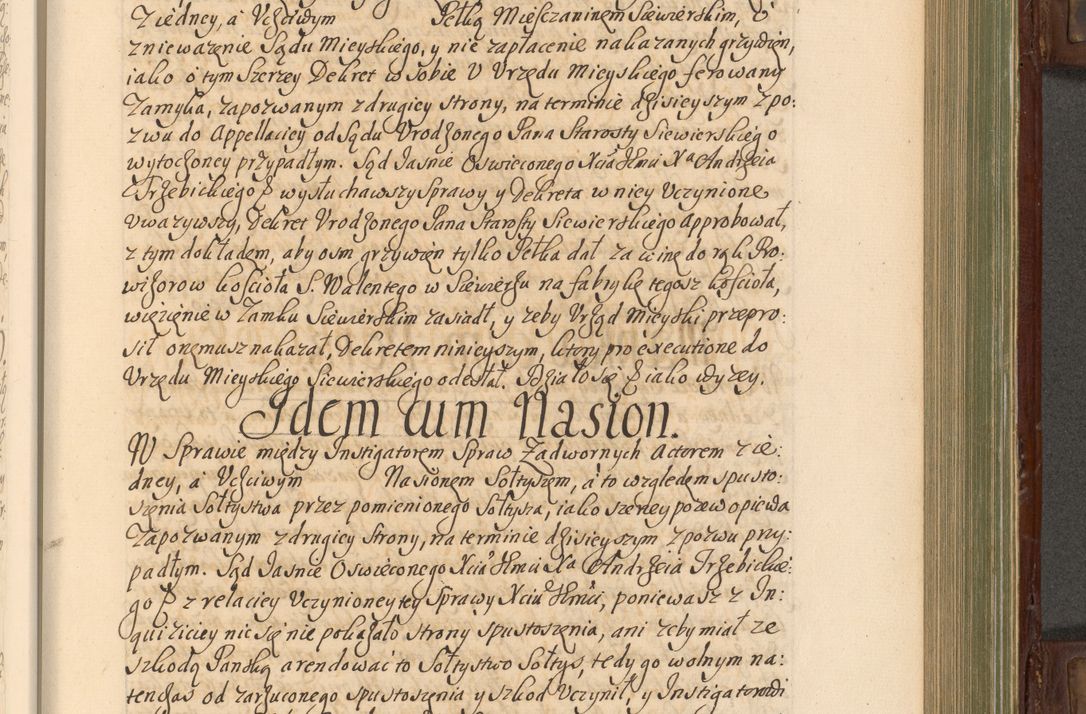 Z iedney, a Uczciwym Pełką Mieszczaninem Siewierskim, o
zniewazenie Sądu Mieyskiego, y nie zapłacenie nakazanych grzywien,
iako o tym szerzey Dekret w sobie U Urzędu Mieyskiego ferowany
Zamyka, zapozwanym z drugiey strony, na terminie dzisieyszym z po:
zwu do Appellaciey od Sądu Urodzonego Pana Starosty Siewierskiego
wytoczoney przypadłym. Sąd Jasnie Oswieconego Xcia Jmci Xa Andrzeia
Trzebickiego wysłuchawszy Sprawy y Dekreta w niey Uczynione
Uwazywszy, Dekret Urodzonego Pana Starosty Siewierskiego approbował,
z tym dokładem, aby osm grzywien tylko Pełka dał za winę do rąk Pro:
wizorow kościoła S. Walentego w Siewierzu na fabrykę tegosz kościoła,
więzienie w Zamku Siewierskim zasiadł, y zeby Urząd Mieyski przepro:
sił onemusz nakazał, Dekretem ninieyszym, ktory pro executione do
Urzędu Mieyskiego Siewierskiego odesłał. Działo się iako wyzey.
Idem cum Nasion.
W Sprawie między Instigatorem Spraw Zadwornych Actorem z ie:
dney, a Uczciwym Nasionem Sołtysem, a to względem spusto:
szenia Sołtystwa przez pomienionego Sołtysa, iako szerzey pozew opiewa
Zapozwanym z drugiey strony, na terminie dzisieyszym z pozwu przy:
padłym. Sąd Jasnie Oswieconego Xcia Jmci Xa Andrzeia Trzebickie:
go z relaciey Uczynioney tey Sprawy Xciu Jmci, poniewasz z In:
quiziciey nic się nie pokazało strony spustoszenia, ani zeby miał ze
szkodą Panską arendować to Sołtystwo Sołtys, tedy go wolnym na:
tenczas od zarzuconego spustoszenia y szkod Uczynił, y Instigatorowi